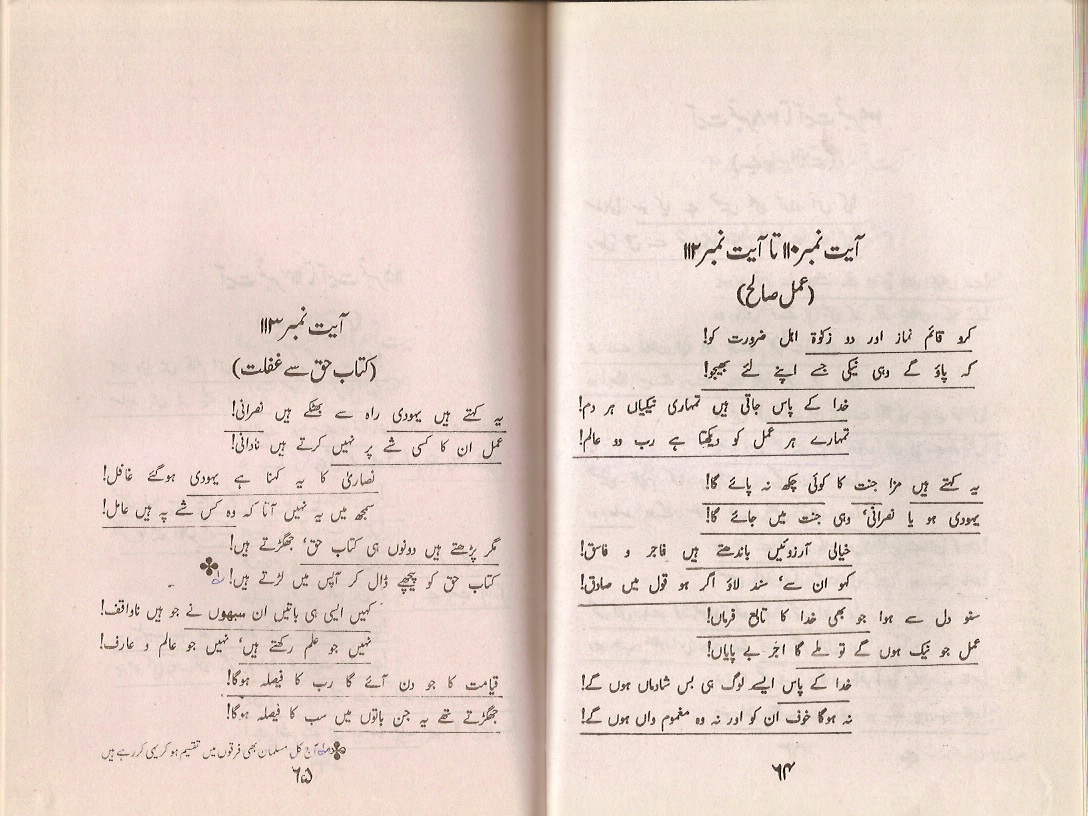 آیت نمبر ۱۱۰ تا آیت نمبر ۱۱۲
(عمل صالح)
کرو قائم نماز اور دو زکوٰۃ اہل ضرورت کو!
کہ پاؤ گے وہی نیکی جسے اپنے لئے بھیجو!
خدا کے پاس جاتی ہیں تمہاری نیکیاں ہر دم!
تمہارے ہر عمل کو دیکھتا ہے رب دو عالم!
یہ کہتے ہیں مزا جنت کا کوئی چکھ نہ پائے گا!
یہودی ہو یا نصرانی، وہی جنت میں جائے گا!
خیالی آرزوئیں باندھتے ہیں فاجر و فاسق!
کہو ان سے، سند لاؤ اگر ہو قول میں صادق!
سنو دل سے ہوا جو بھی خدا کا تابع فرماں!
عمل جو نیک ہوں گے تو ملے گا اجر بے پایاں!
خدا کے پاس ایسے لوگ ہی بس شاداں ہوں گے!
نہ ہوگا خوف ان کو اور نہ وہ مغموم واں ہوں گے!
۶۴
آیت نمبر ۱۱۳
(کتاب حق سے غفلت)
یہ کہتے ہیں یہودی راہ سے بھٹکے ہیں نصرانی!
عمل ان کا کسی شے پر نہیں کرتے ہیں نادانی!
نصاریٰ کا یہ کہنا ہے یہودی ہوگئے غافل!
سمجھ میں یہ نہیں آتا کہ وہ کس شے پہ ہیں عامل!
مگر پڑھتے ہیں دونوں ہی کتاب حق، جھگڑتے ہیں!
کتاب حق کو پیچھے ڈال کر آپس میں لڑتے ہیں!
کہیں ایسی ہی باتیں ان سبھوں نے جو ہیں ناواقف!
نہیں جو علم رکھتے ہیں، نہیں جو عالم و عارف!
قیامت کا جو دن آئے گا رب کا فیصلہ ہوگا!
جھگڑتے تھے یہ جن باتوں میں سب کا فیصلہ ہوگا!
آج کل مسلمان بھی فرقوں میں تقسیم ہو کر یہی کر رہے ہیں
۶۵